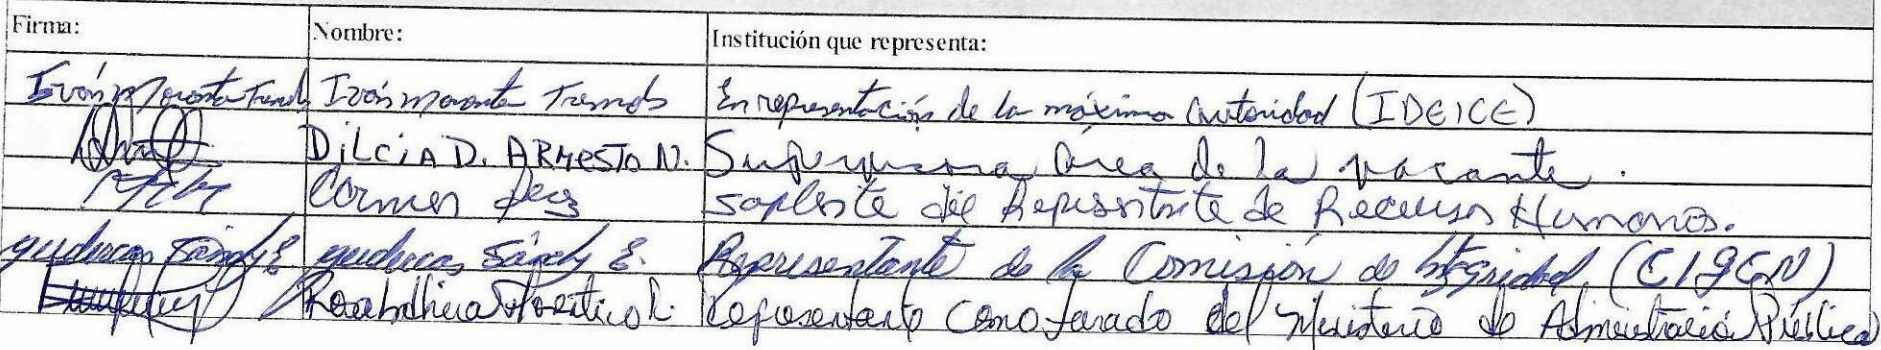 Firma: Nombre: Institución que representa:
Iván Moronta Iván Moronta En representación de la máxima autoridad (IDEICE)
Dilcia D. Armesto N. Supervisora área de la vacante.
Carmen suplente del Representante de Recursos Humanos.
E. E. Representante de la Comisión de Integridad (CIGCN)
Representante como Jurado del Ministerio de Administración Pública